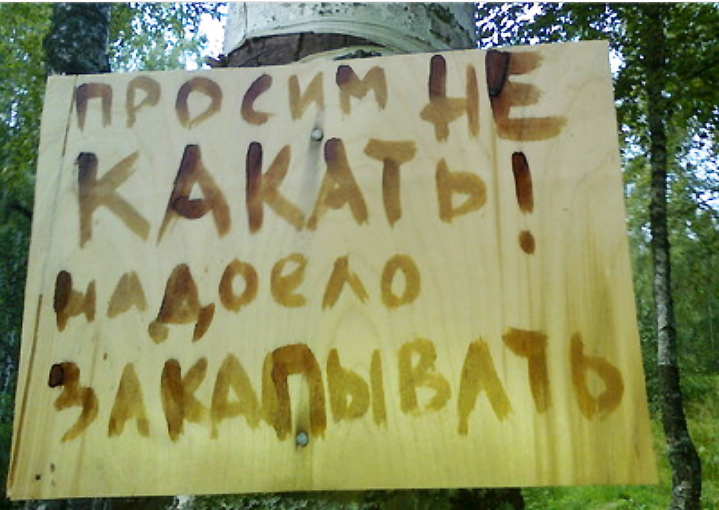 ПРОСИМ НЕ
КАКАТЬ!
НАДОЕЛО
ЗАКАПЫВАТЬ